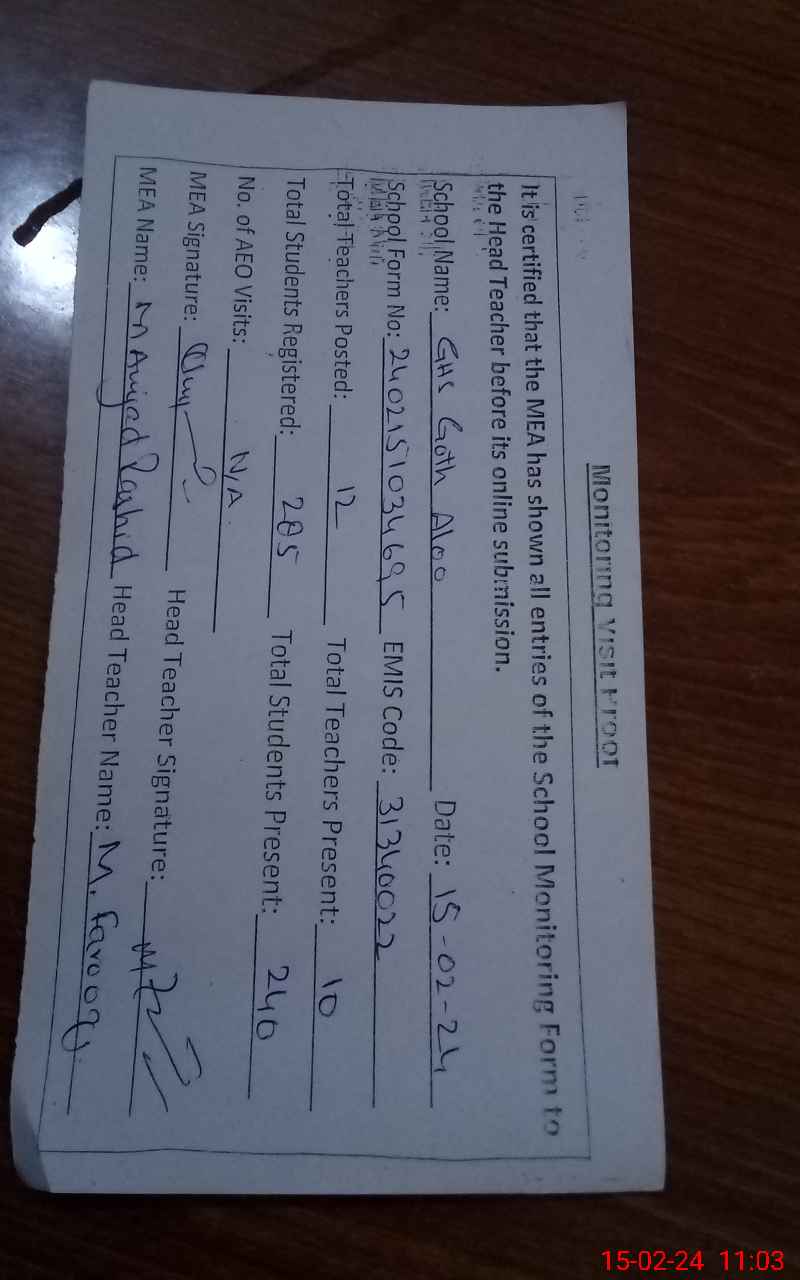 Monitoring Visit Proof
It is certified that the MEA has shown all entries of the School Monitoring Form to
the Head Teacher before its online submission.
School Name: GHS Goth Aloo Date: 15-02-24
School Form No: 2402151034695 EMIS Code: 31340022
Total Teachers Posted: 12 Total Teachers Present: 10
Total Students Registered: 285 Total Students Present: 240
No. of AEO Visits: N/A
MEA Signature: Head Teacher Signature:
MEA Name: M Amjad Rashid Head Teacher Name: M. Farooq
15-02-24 11:03